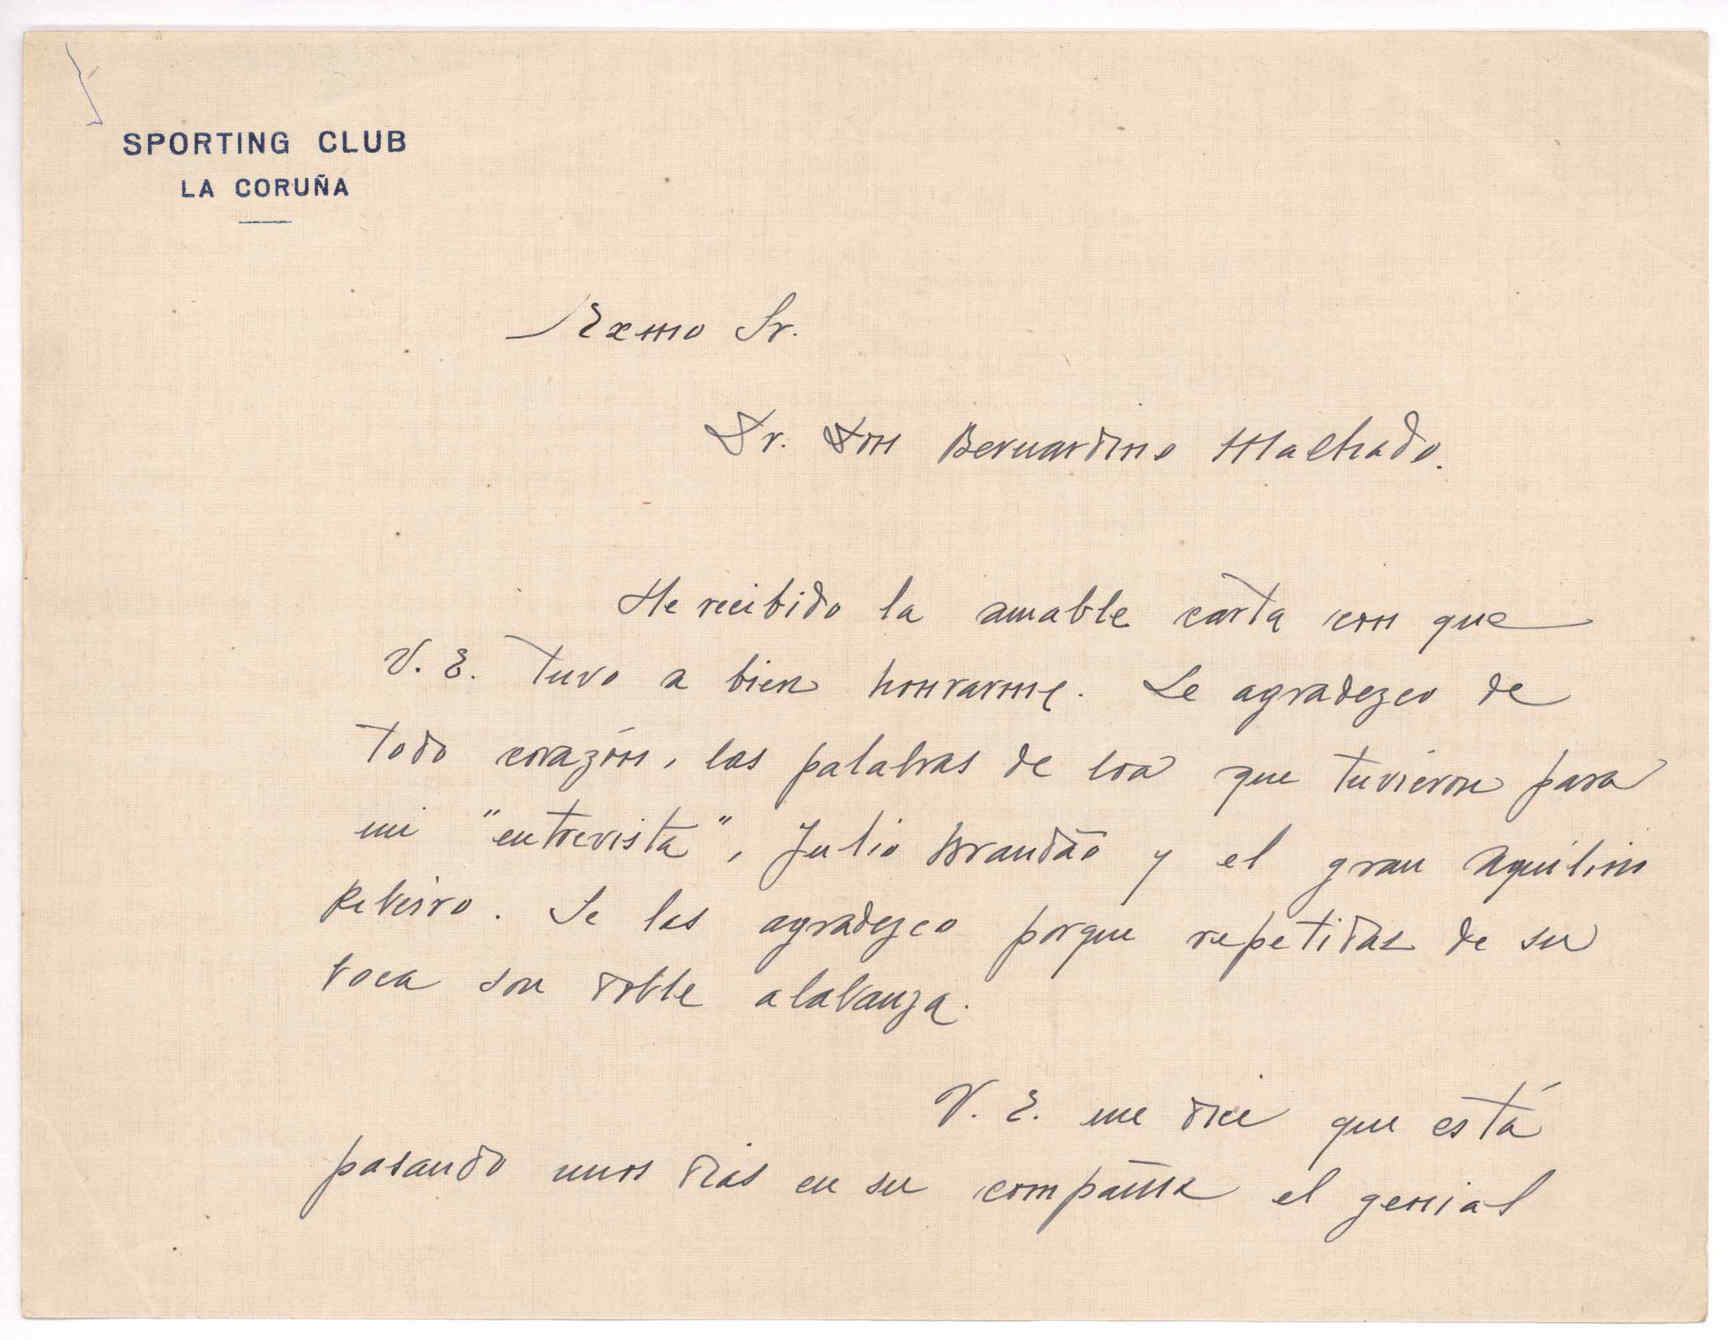 SPORTING CLUB
LA CORUÑA
Exmo Sr.
Dr. Don Bernardino Machado.
He recibido la amable carta con que
V. E. tuvo a bien honrarme. Le agradezco de
todo corazón, las palabras de loa que tuvieron para
mi "entrevista", Julio Brandão y el gran Aquilino
Ribeiro. Se las agradezco porque repetidas de su
boca son doble alabanza.
V. E. me dice que está
pasando unos dias en su compañia el genial